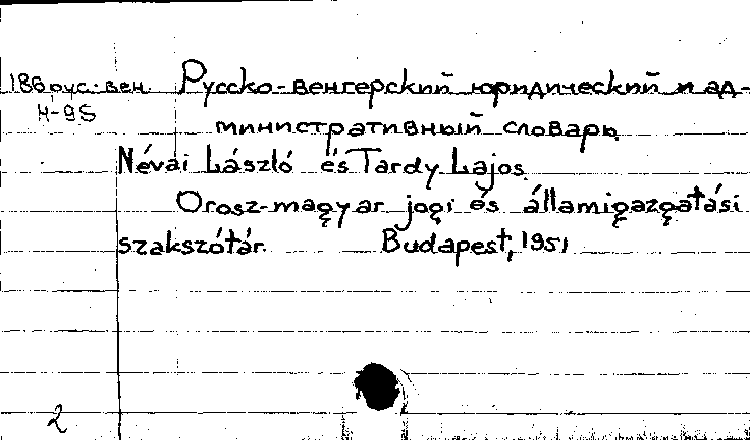 186 рус.-вен. Русско-венгерский юридический и ад-
H-95
министративный словарь
Névai László és Tardy Lajos.
Orosz-magyar jogi és államigazgatási
szakszótár. Budapest, 1951
2